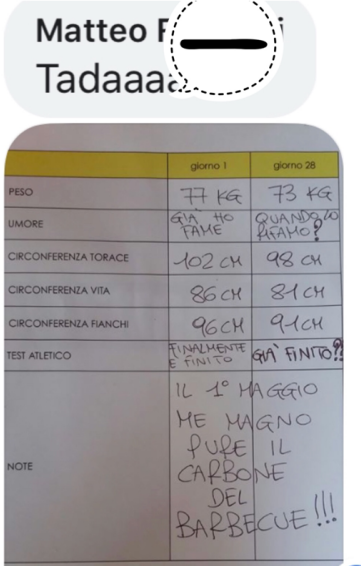 Matteo
Tadaaaa
giorno 1 giorno 28
PESO 77 KG 73 KG
UMORE GIÀ HO FAME QUANDO LO RIFAMO?
CIRCONFERENZA TORACE 102 CM 98 CM
CIRCONFERENZA VITA 86 CM 81 CM
CIRCONFERENZA FIANCHI 96 CM 91 CM
TEST ATLETICO FINALMENTE È FINITO GIÀ FINITO?
NOTE
IL 1° MAGGIO
ME MAGNO
PURE IL
CARBONE
DEL
BARBECUE!!!